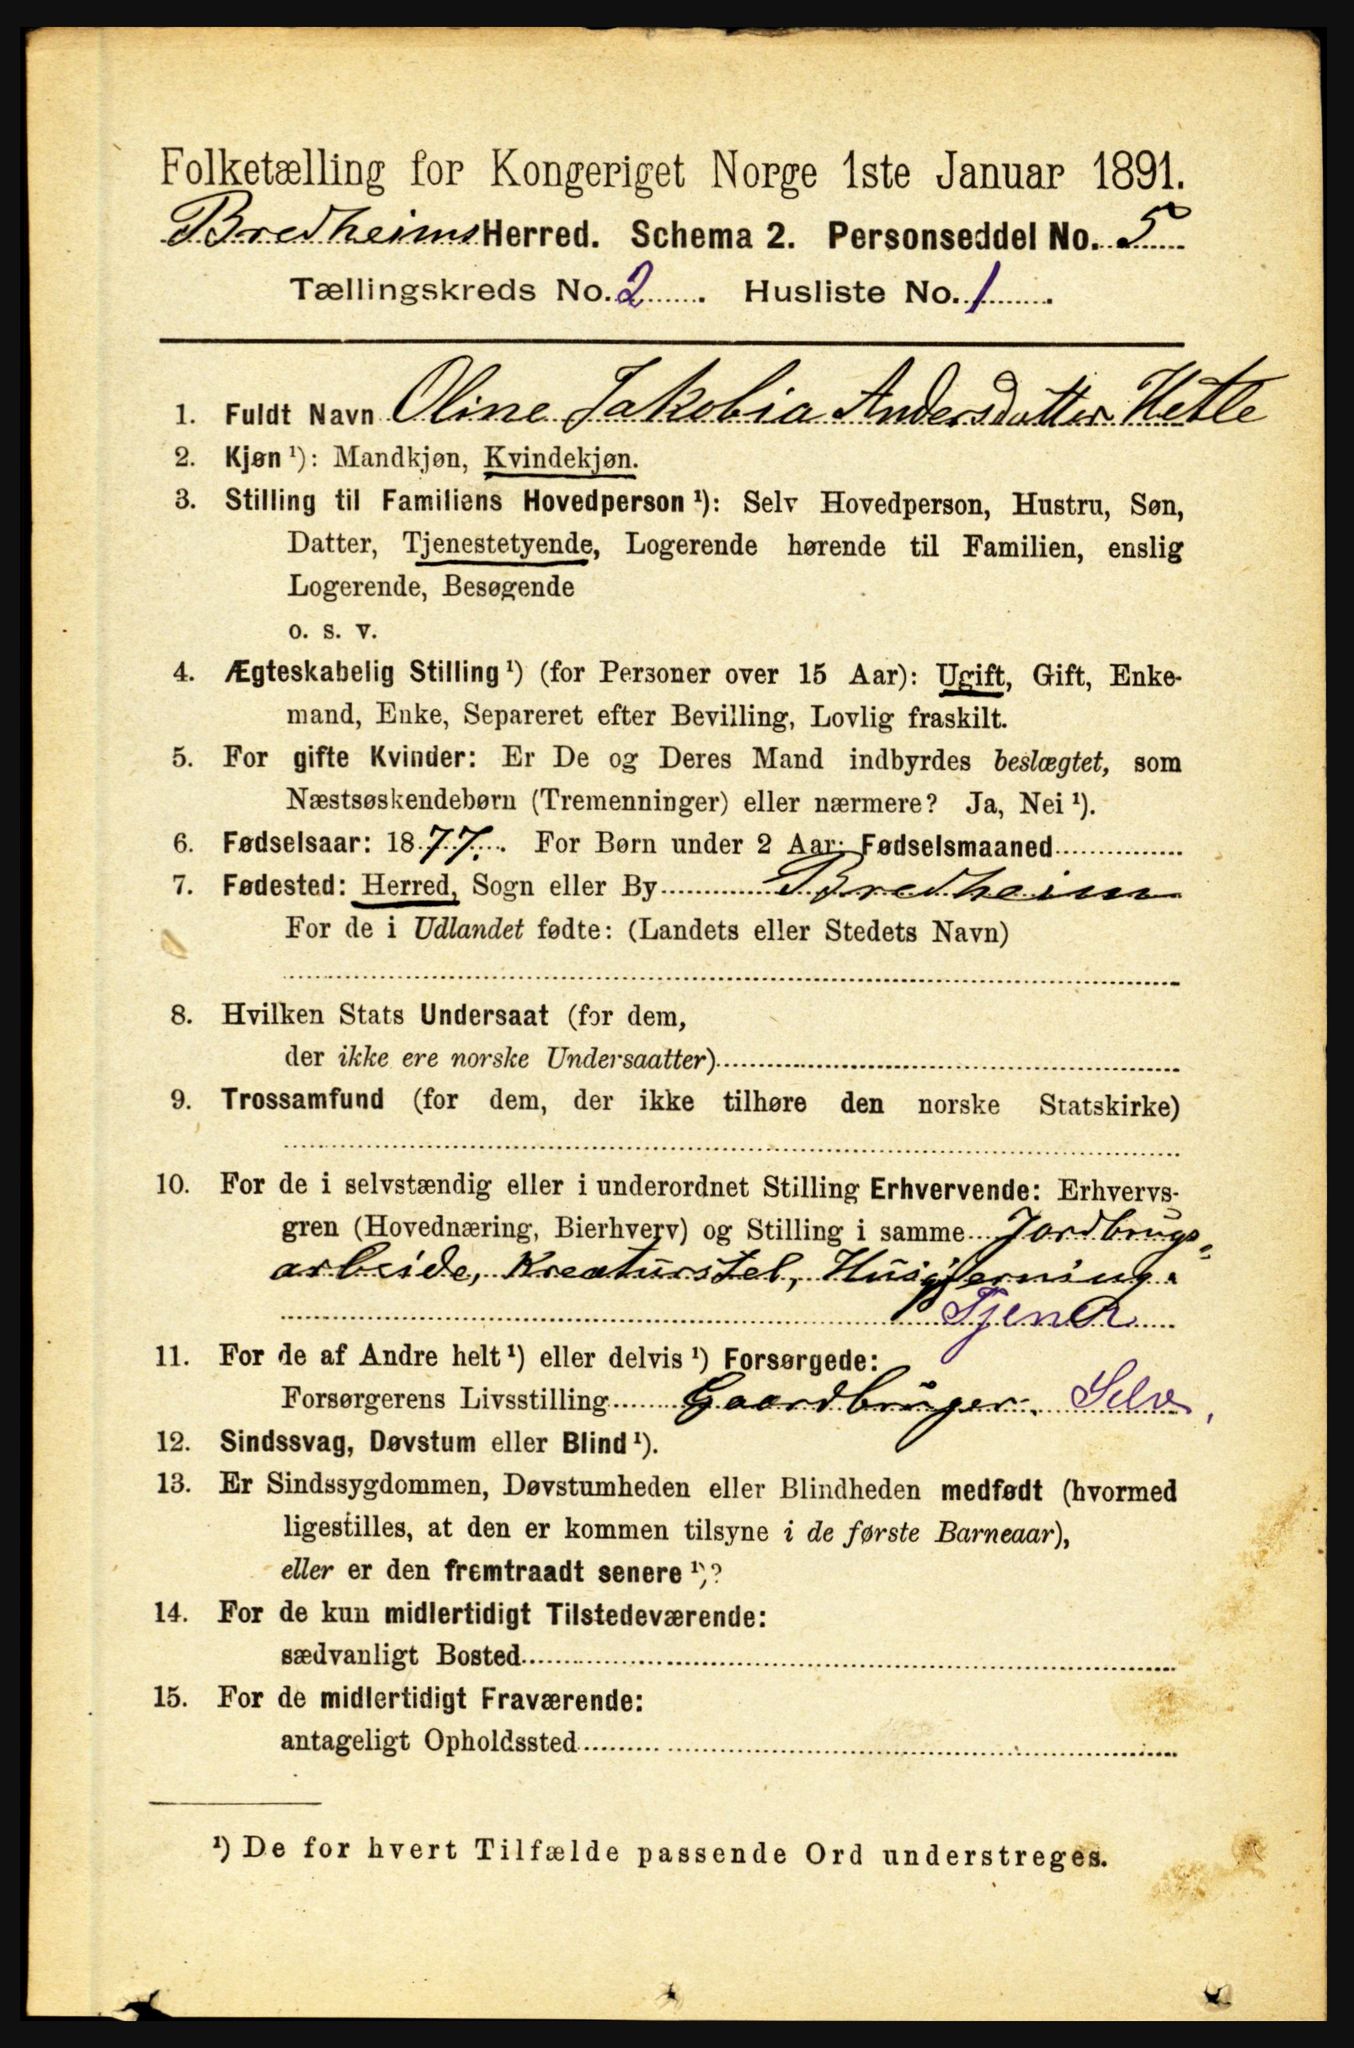 Folketælling for Kongeriget Norge 1ste Januar 1891.
Bredheims Herred. Schema 2. Personseddel No. 5
Tællingskreds No. 2. Husliste No. 1.
1. Fuldt Navn Oline Jakobia Andersdatter Hetle
2. Kjøn ¹): Mandkjøn, Kvindekjøn.
3. Stilling til Familiens Hovedperson ¹): Selv Hovedperson, Hustru, Søn,
Datter, Tjenestetyende, Logerende hørende til Familien, enslig
Logerende, Besøgende
o. s. v.
4. Ægteskabelig Stilling ¹) (for Personer over 15 Aar): Ugift, Gift, Enke-
mand, Enke, Separeret efter Bevilling, Lovlig fraskilt.
5. For gifte Kvinder: Er De og Deres Mand indbyrdes beslægtet, som
Næstsøskendebørn (Tremenninger) eller nærmere? Ja, Nei ¹).
6. Fødselsaar: 1877. For Børn under 2 Aar: Fødselsmaaned
7. Fødested: Herred, Sogn eller By Bredheim
For de i Udlandet fødte: (Landets eller Stedets Navn)
8. Hvilken Stats Undersaat (for dem,
der ikke ere norske Undersaatter)
9. Trossamfund (for dem, der ikke tilhøre den norske Statskirke)
10. For de i selvstændig eller i underordnet Stilling Erhvervende: Erhvervs-
gren (Hovednæring, Bierhverv) og Stilling i samme Jordbrugs-
arbeide, Kreaturstel, Husgjerning.
Tjener
11. For de af Andre helt ¹) eller delvis ¹) Forsørgede:
Forsørgerens Livsstilling Gaardbruger. Selv,
12. Sindssvag, Døvstum eller Blind ¹).
13. Er Sindssygdommen, Døvstumheden eller Blindheden medfødt (hvormed
ligestilles, at den er kommen tilsyne i de første Barneaar),
eller er den fremtraadt senere ¹)?
14. For de kun midlertidigt Tilstedeværende:
sædvanligt Bosted
15. For de midlertidigt Fraværende:
antageligt Opholdssted
¹) De for hvert Tilfælde passende Ord understreges.